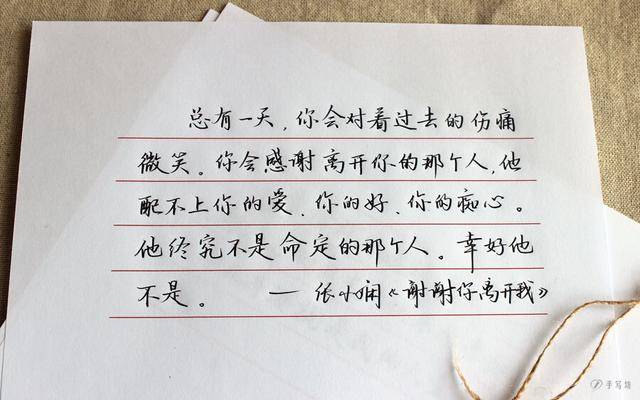 总有一天,你会对着过去的伤痛
微笑。你会感谢离开你的那个人,他
配不上你的爱、你的好、你的痴心。
他终究不是命定的那个人。幸好他
不是。 — 张小娴《谢谢你离开我》
手写控